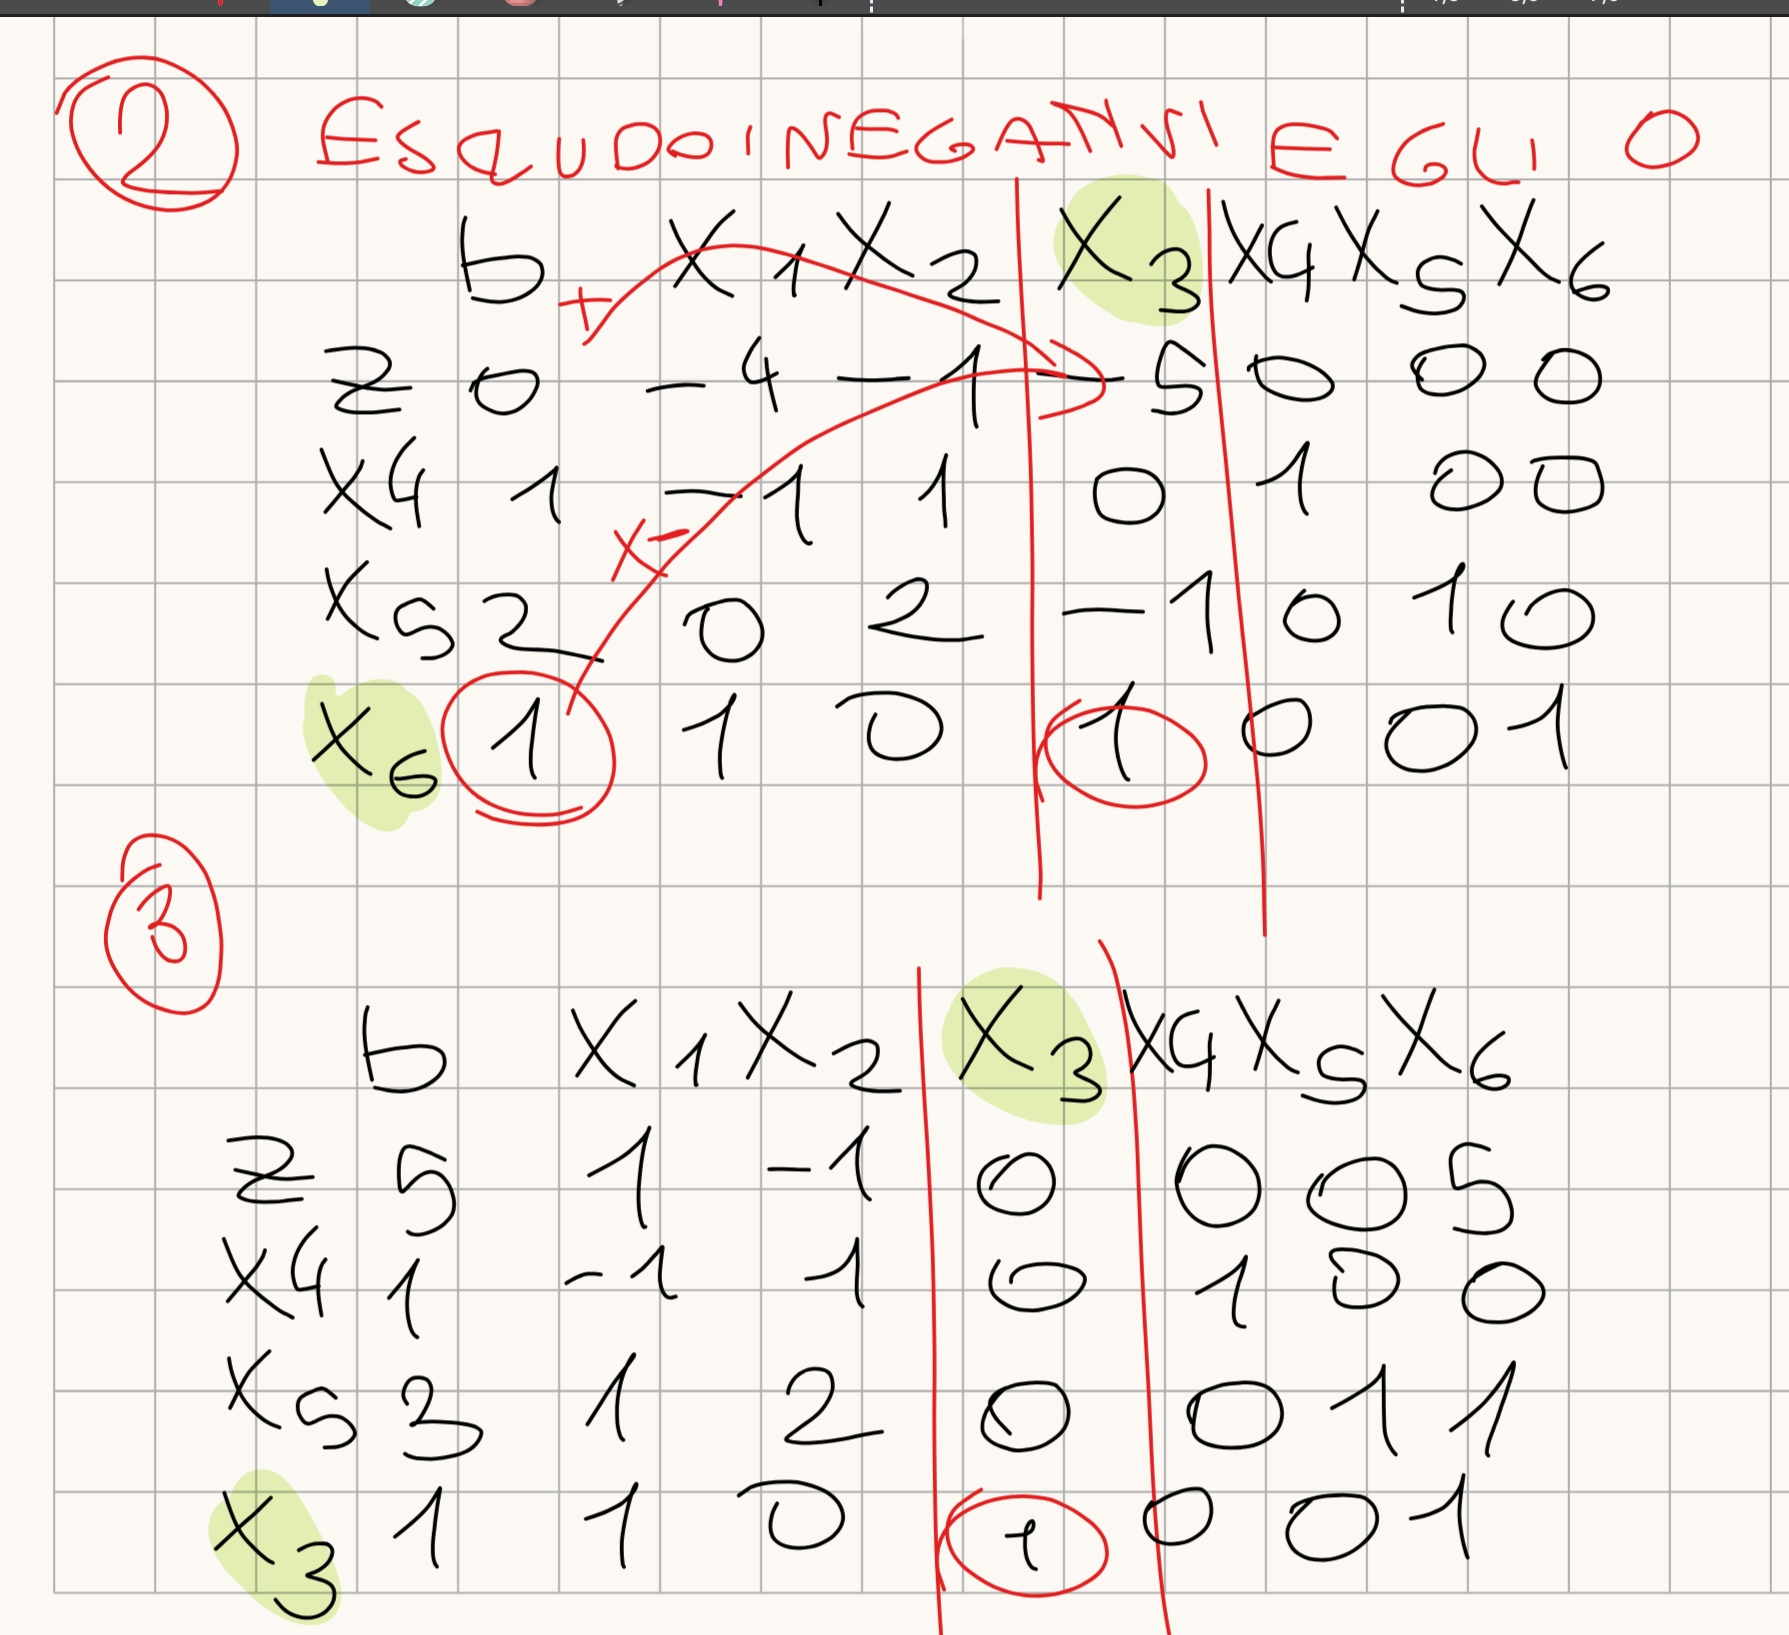 2 ESQUDOINEGATIVI E GLI 0
b X1 X2 X3 X4 X5 X6
+
Z 0 -4 -1 -5 0 0 0
X4 1 -1 1 0 1 0 0
X-
X5 2 0 2 -1 0 1 0
X6 1 1 0 1 0 0 1
3
b X1 X2 X3 X4 X5 X6
Z 5 1 -1 0 0 0 5
X4 1 -1 1 0 1 0 0
X5 3 1 2 0 0 1 1
X3 1 1 0 1 0 0 1